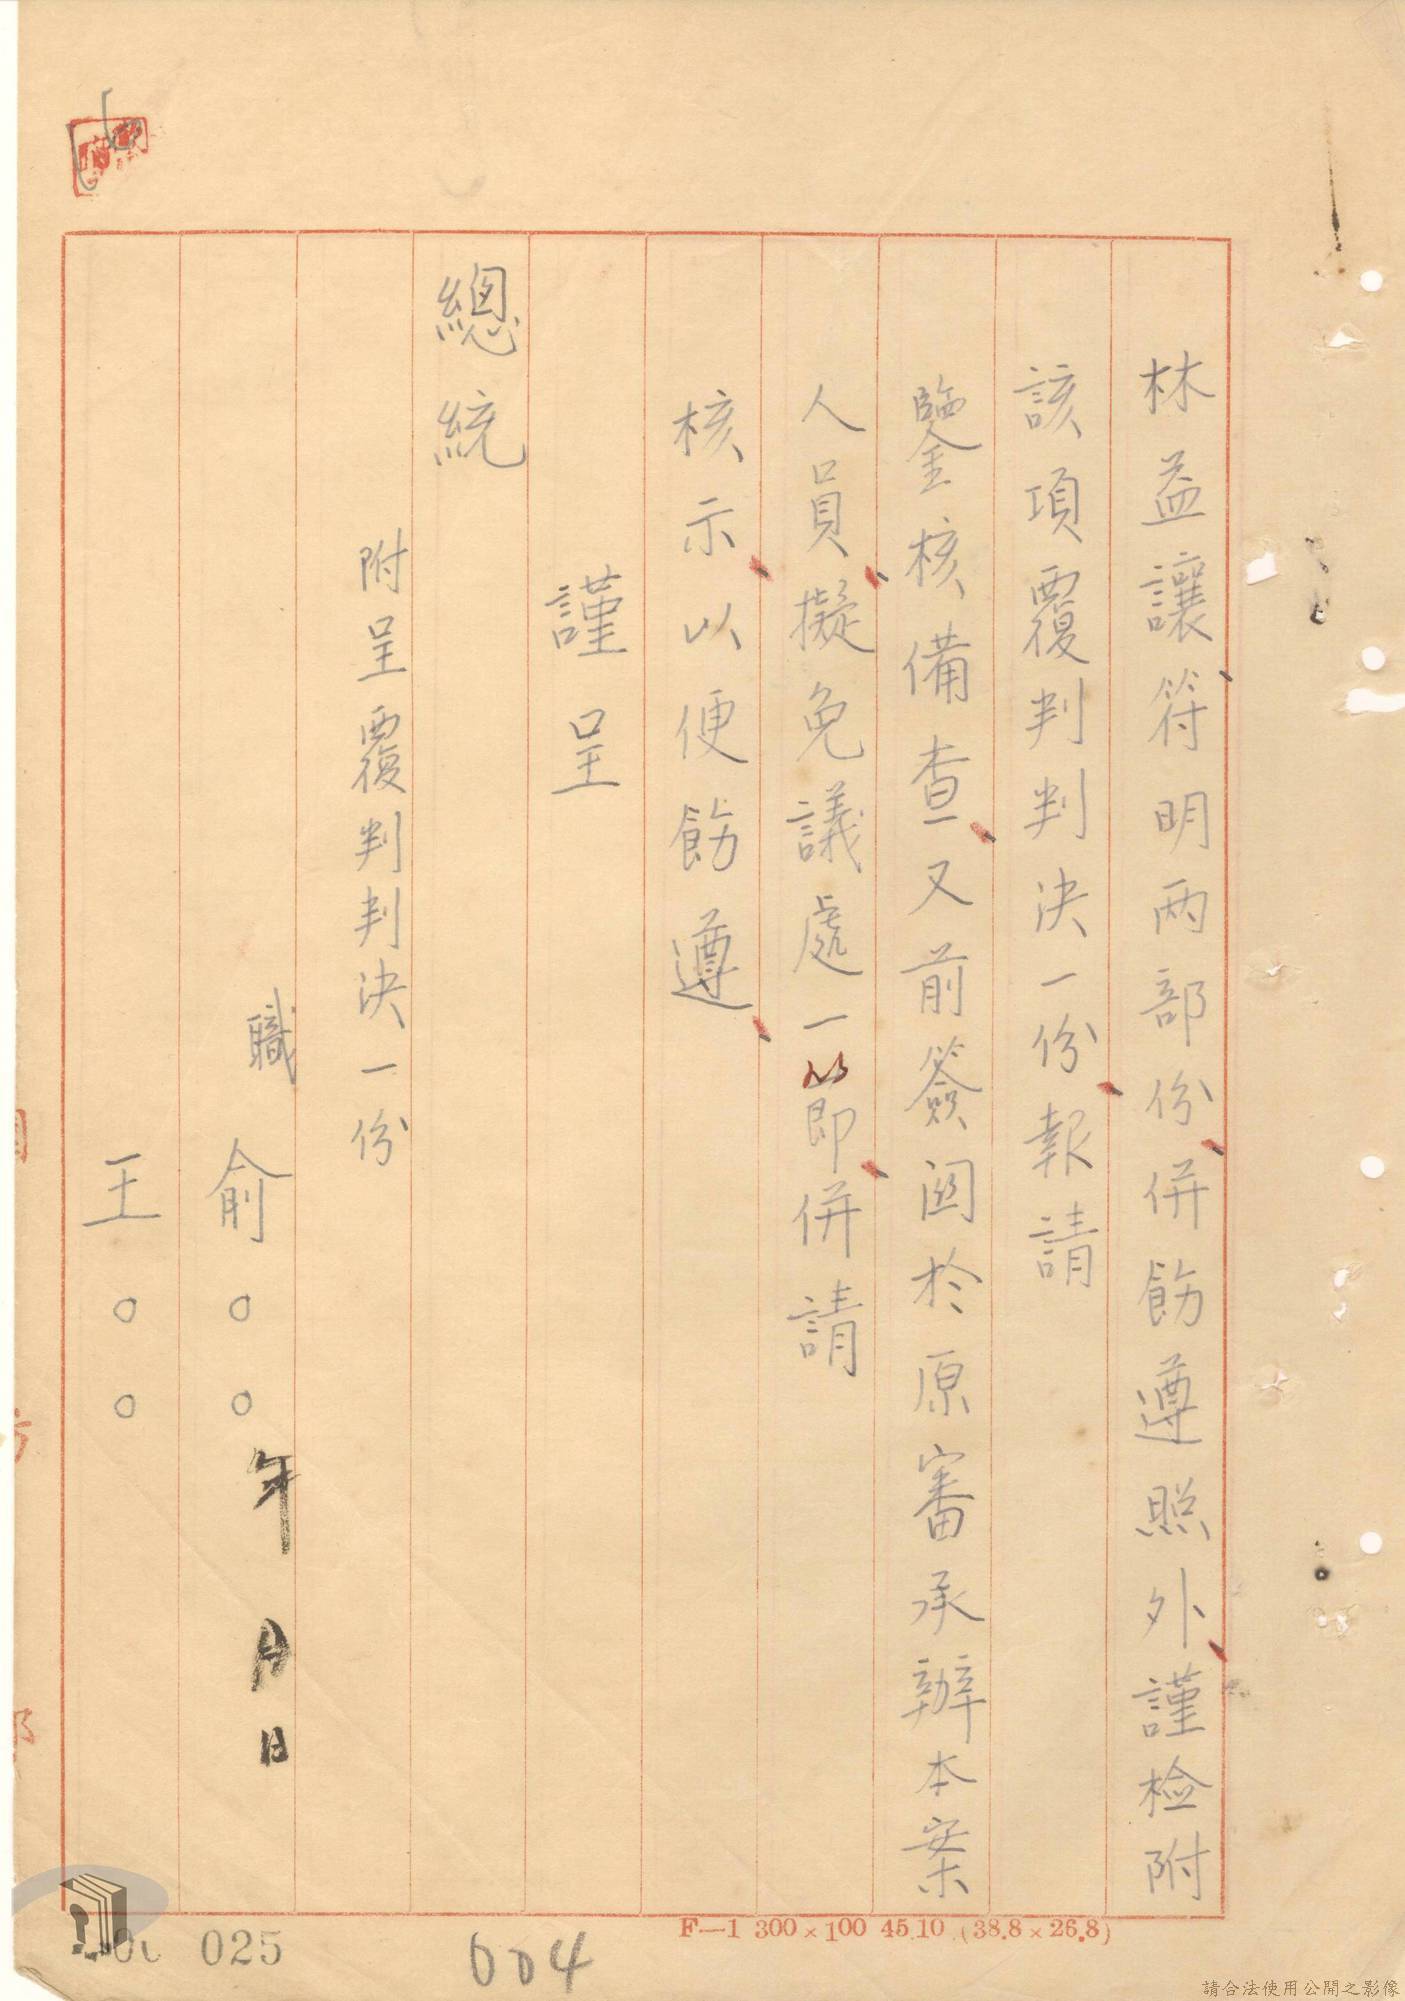 林益讓符明兩部份併飭遵照外謹檢附
該項覆判判決一份報請
鑒核備查又前簽關於原審承辦本案
人員擬免議處一節併請
核示以便飭遵
謹呈
總統
附呈覆判判決一份
職 俞○○
王○○
年 月 日
F—1 300×100 45.10 (38.8×26.8)
025
004
請合法使用公開之影像